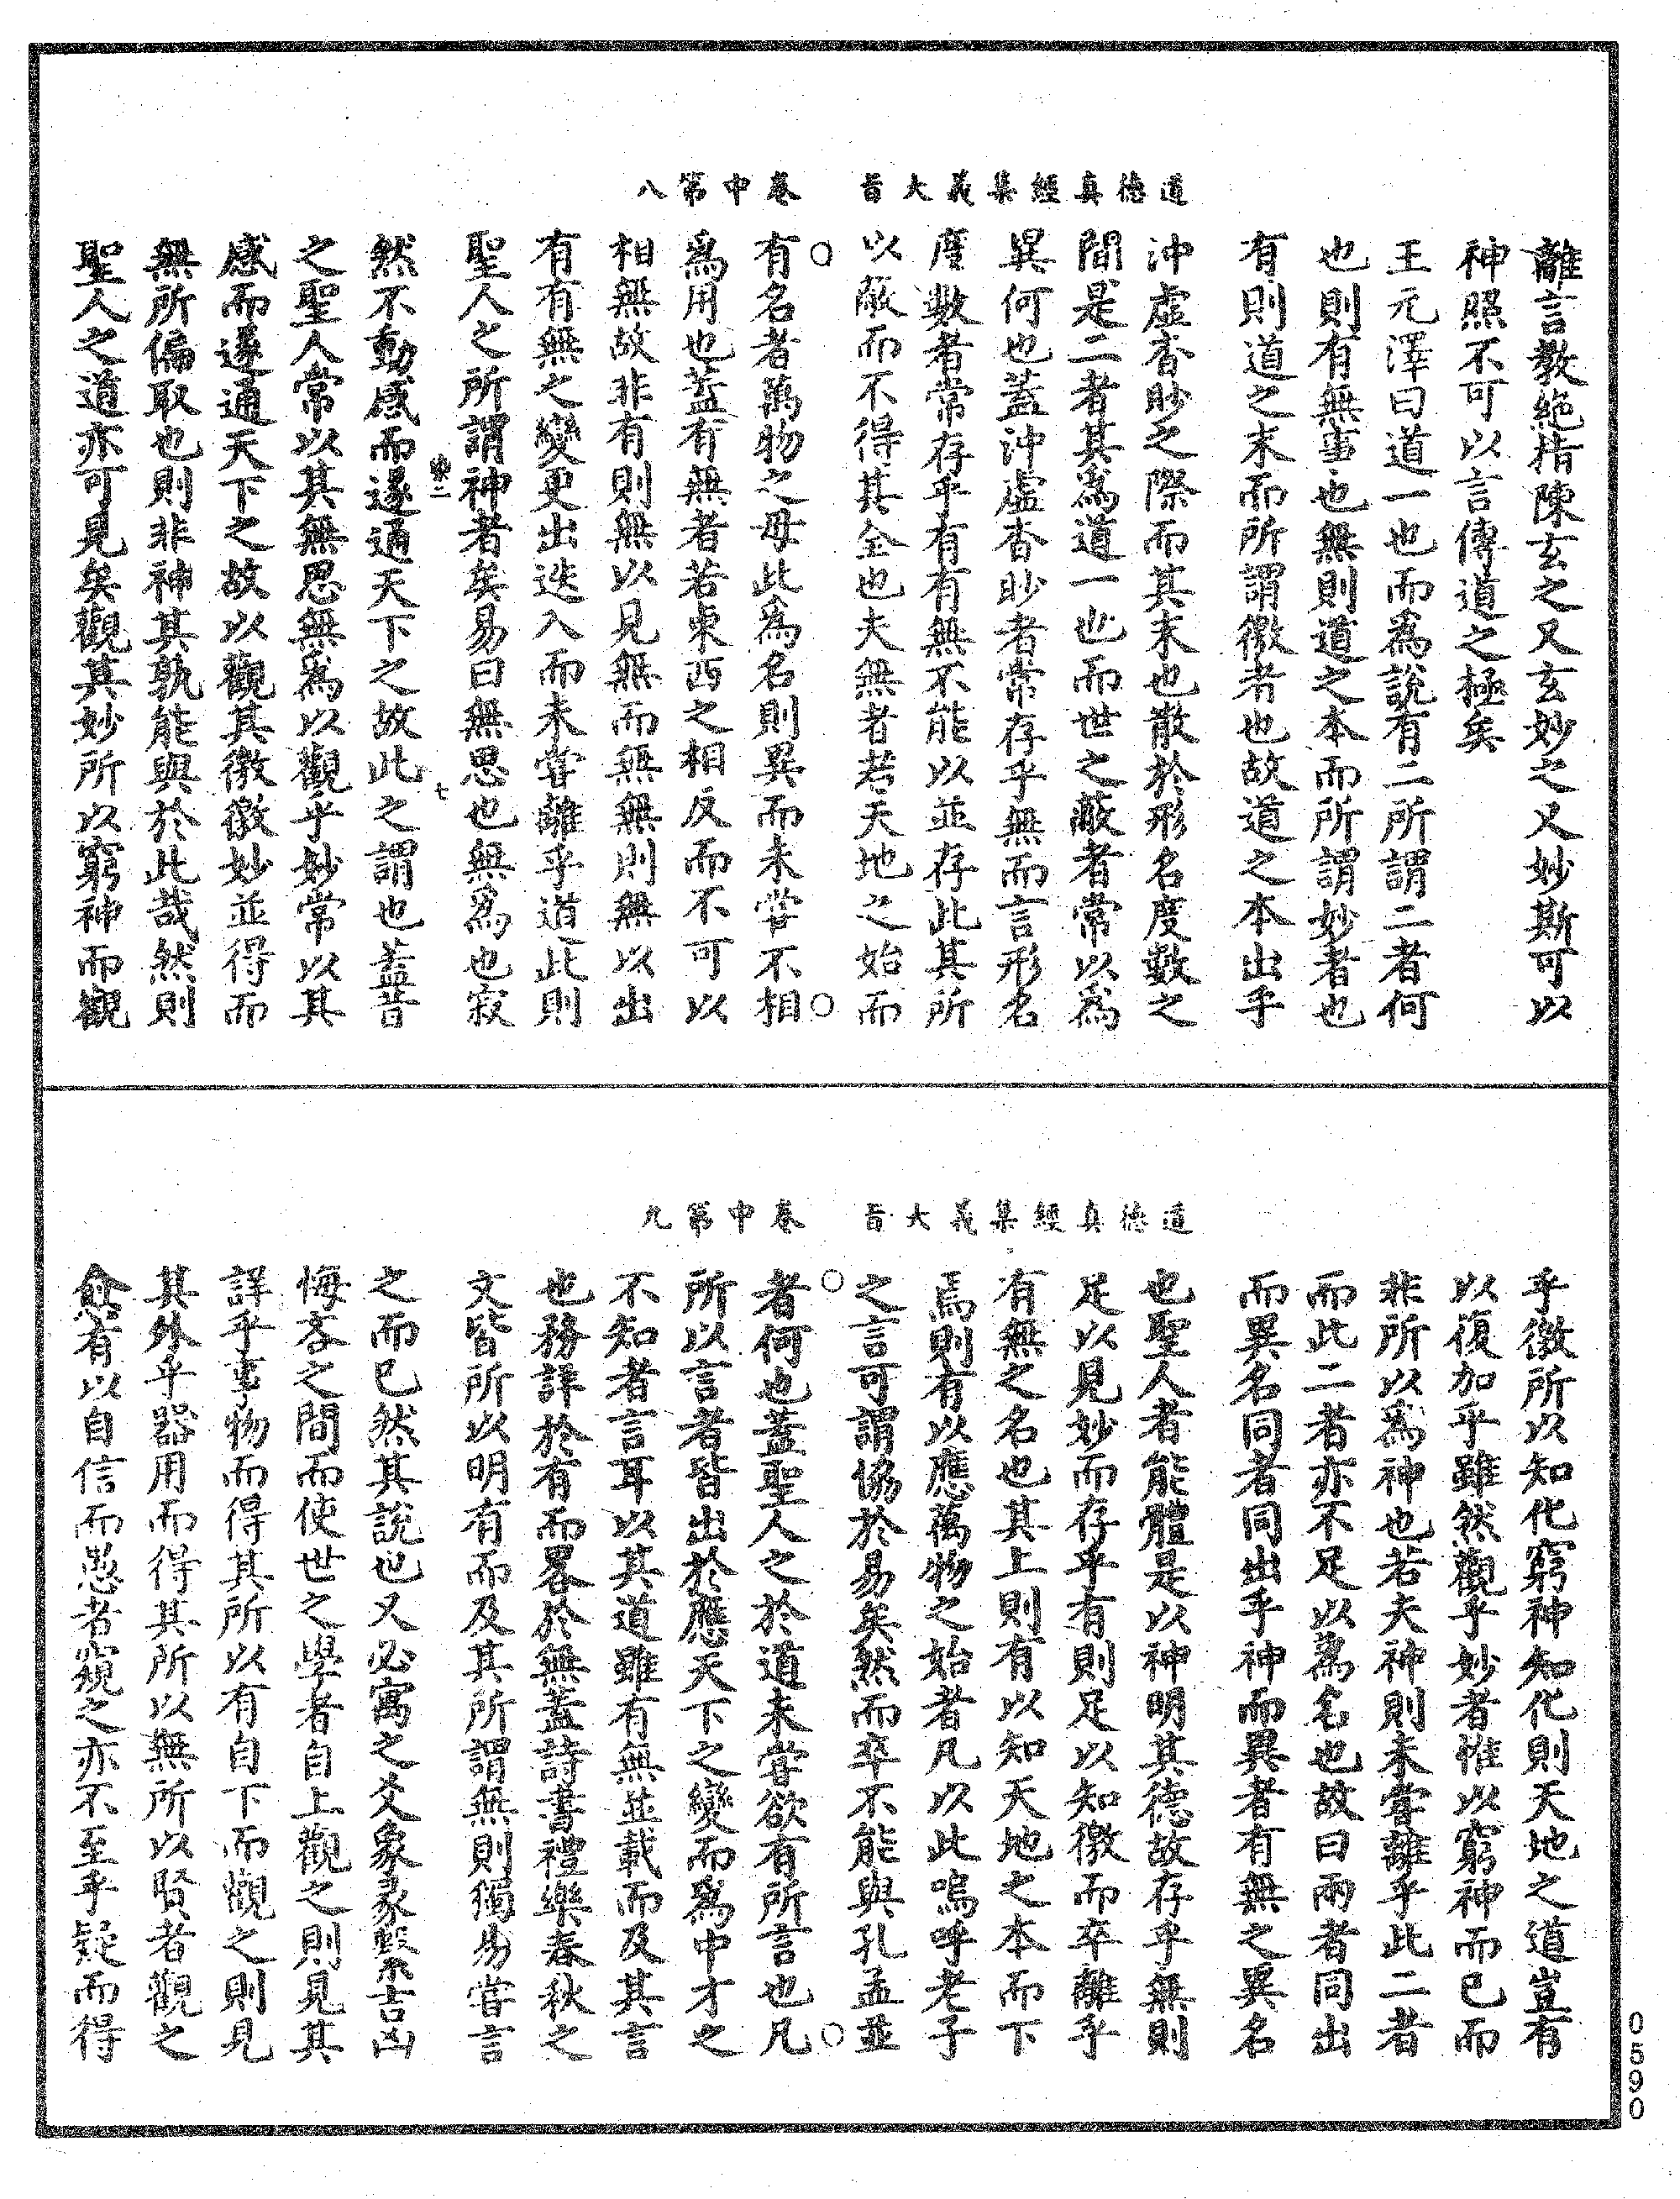 道德真經集義大旨　卷中第八
離言教絶指陳玄之又玄妙之又妙斯可以
神照不可以言傳道之極矣
王元澤曰道一也而爲說有二所謂二者何
也則有無事也無則道之本而所謂妙者也
有則道之末而所謂徼者也故道之本出乎
沖虛杳眇之際而其末也散於形名度數之
間是二者其爲道一也而世之蔽者常以爲
異何也蓋沖虛杳眇者常存乎無而言形名
度數者常存乎有有無不能以並存此其所
以蔽而不得其全也夫無者若天地之始而
有名者萬物之母此爲名則異而未嘗不相
爲用也蓋有無者若東西之相反而不可以
相無故非有則無以見無而無無則無以出
有有無之變更出迭入而未嘗離乎道此則
聖人之所謂神者矣易曰無思也無爲也寂
染二　七
然不動感而遂通天下之故此之謂也蓋昔
之聖人常以其無思無爲以觀乎妙常以其
感而遂通天下之故以觀其徼徼妙並得而
無所偏取也則非神其孰能與於此哉然則
聖人之道亦可見矣觀其妙所以窮神而觀
道德真經集義大旨　卷中第九
乎徼所以知化窮神知化則天地之道豈有
以復加乎雖然觀乎妙者惟以窮神而已而
非所以爲神也若夫神則未嘗離乎此二者
而此二者亦不足以爲名也故曰兩者同出
而異名同者同出乎神而異者有無之異名
也聖人者能體是以神明其德故存乎無則
足以見妙而存乎有則足以知徼而卒離乎
有無之名也其上則有以知天地之本而下
焉則有以應萬物之始者凡以此嗚呼老子
之言可謂協於易矣然而卒不能與孔孟並
者何也蓋聖人之於道未嘗欲有所言也凡
所以言者皆出於應天下之變而爲中才之
不知者言耳以其道雖有無並載而及其言
也務詳於有而畧於無蓋詩書禮樂春秋之
文皆所以明有而及其所謂無則獨易嘗言
之而已然其說也又必寓之爻象彖繫吉凶
悔吝之間而使世之學者自上觀之則見其
詳乎事物而得其所以有自下而觀之則見
其外乎器用而得其所以無所以賢者觀之
愈有以自信而愚者窺之亦不至乎疑而得
0590